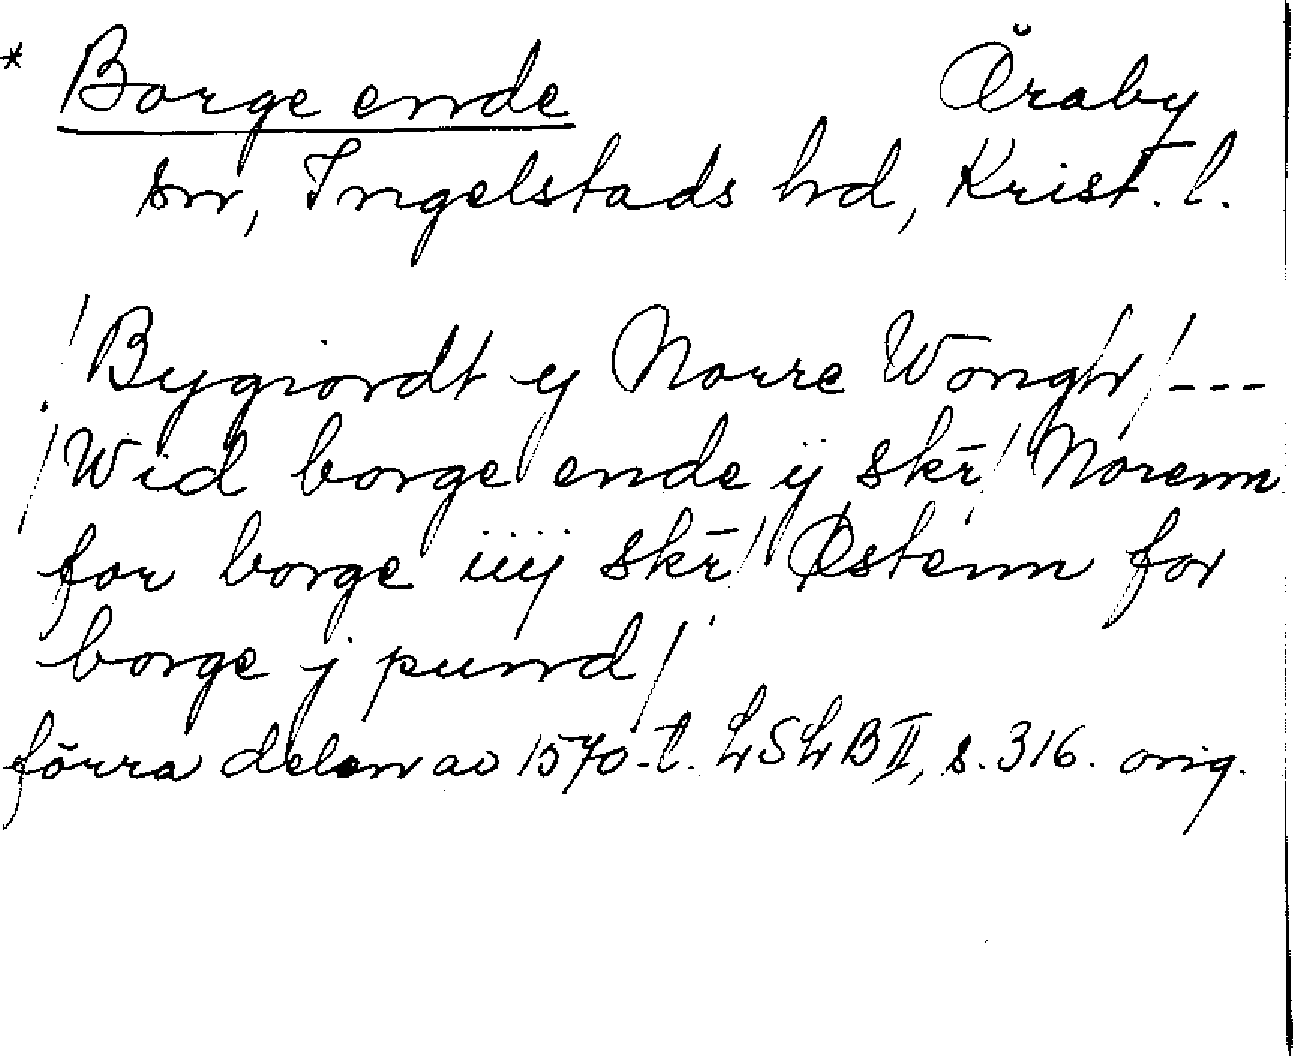 * Borge ende Öraby
sn, Ingelstads hd, Krist. l.
/Bygiordt y Norre Wongh/ ---
/Wid borge ende ij skr̄/ Norenn
for borge iiij skr̄/ Østenn for
borge j pund/
förra delen av 1570-t. LSLB II, s. 316. orig.